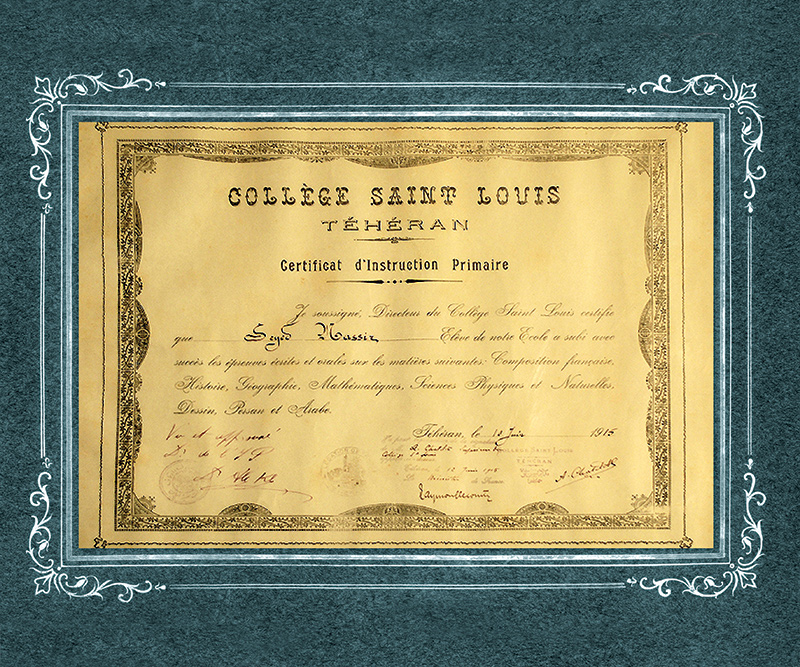 COLLÈGE SAINT LOUIS
TÉHÉRAN
Certificat d'Instruction Primaire
Je soussigné, Directeur du Collège Saint Louis certifie
que Seyed Nassir Elève de notre Ecole a subi avec
succès les épreuves écrites et orales sur les matières suivantes: Composition française,
Histoire, Géographie, Mathématiques, Sciences Physiques et Naturelles,
Dessin, Persan et Arabe.
Téhéran, le 12 Juin 1915
Vu et approuvé
COLLEGE SAINT LOUIS
TÉHÉRAN
12 Juin
de France